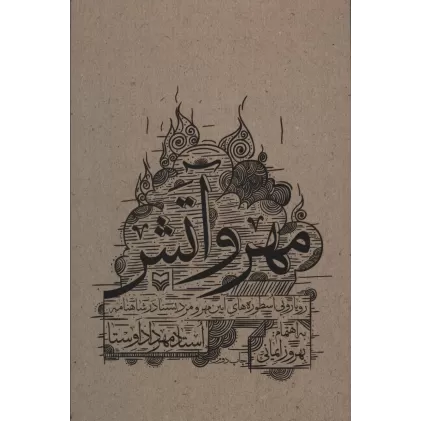 مهر و آتش
رویارویی اسطوره‌های آیین مهر و مزدیسنا در شاهنامه
به اهتمام:
استاد مهرداد اوستا
بهروز ایمانی
چاپ دوم